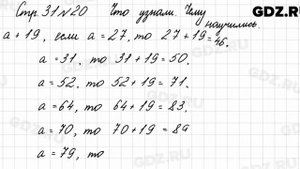 Стр. 31 №20 Что узнали. Чему научились
GDZ.RU
a + 19, если a = 27, то 27 + 19 = 46.
a = 31, то 31 + 19 = 50.
a = 52, то 52 + 19 = 71.
a = 64, то 64 + 19 = 83.
a = 70, то 70 + 19 = 89
a = 79, то